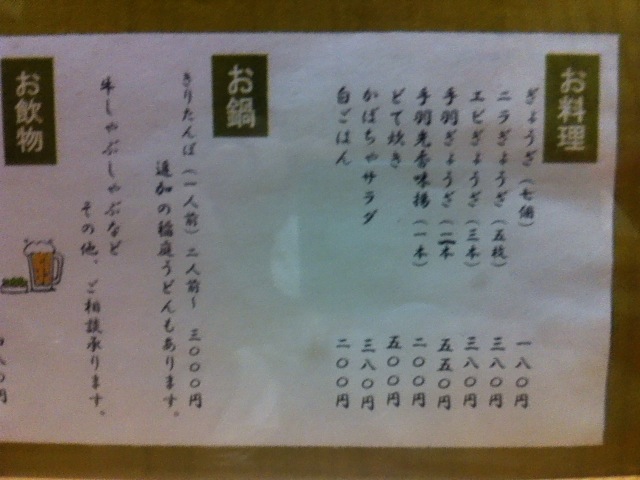 お料理
ぎょうざ（七個） 一八〇円
ニラぎょうざ（五枚） 三八〇円
エビぎょうざ（三本） 三八〇円
手羽ぎょうざ（二本） 五五〇円
手羽先香味揚（一本） 二〇〇円
どて炊き 五〇〇円
かぼちゃサラダ 三八〇円
白ごはん 二〇〇円
お鍋
きりたんぽ（一人前）二人前〜 三〇〇〇円
追加の稲庭うどんもあります。
牛しゃぶしゃぶなど
その他、ご相談承ります。
お飲物
八〇円